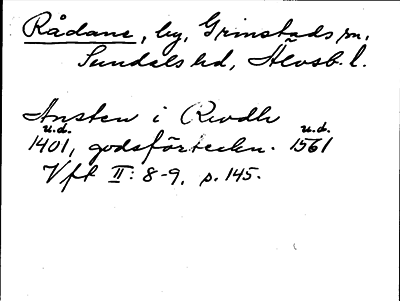 Rådane, by, Grinstads sn,
Sundals hd, Älvsb. l.
Ansten i Rwdh
u.d. u.d.
1401, godsförteckn. 1561
Vft II: 8-9, p. 145.